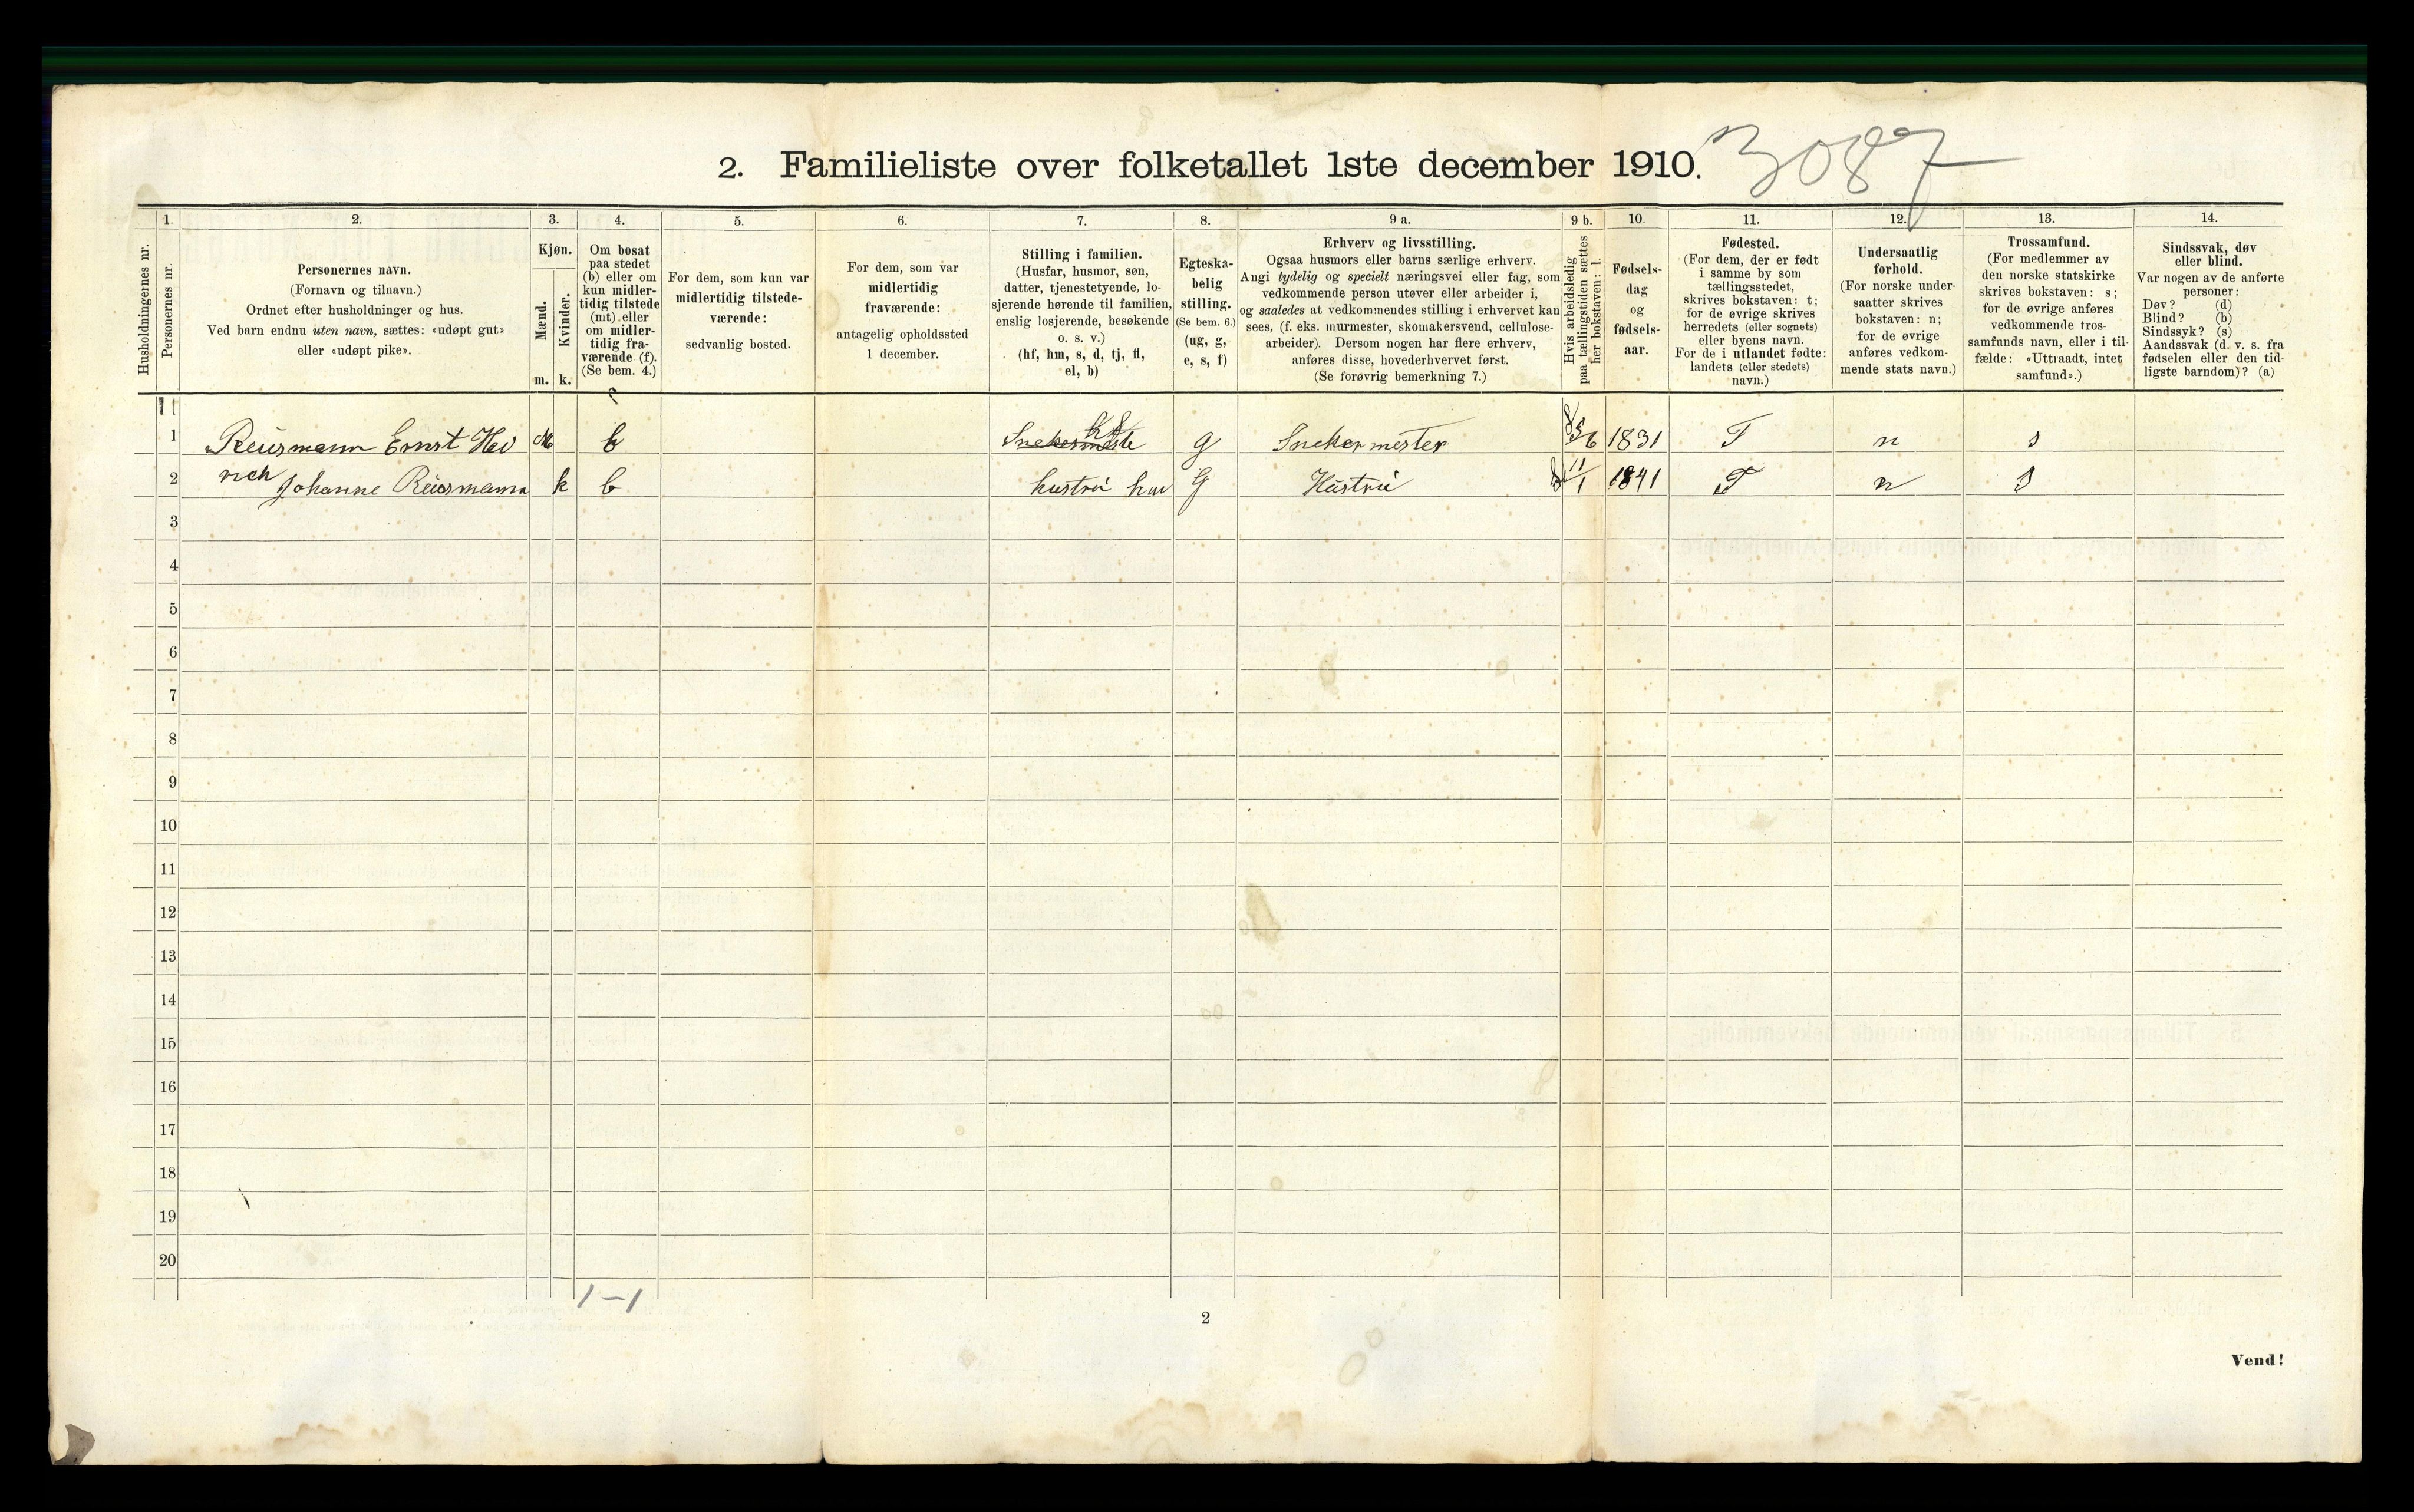 2. Familieliste over folketallet 1ste december 1910. 3087
Husholdningernes nr.
1.
Personernes nr.
2.
Personernes navn.
(Fornavn og tilnavn.)
Ordnet efter husholdninger og hus.
Ved barn endnu uten navn, sættes: «udøpt gut»
eller «udøpt pike».
3.
Kjøn.
Mænd.
m.
Kvinder.
k.
4.
Om bosat
paa stedet
(b) eller om
kun midler-
tidig tilstede
(mt) eller
om midler-
tidig fra-
værende (f).
(Se bem. 4.)
5.
For dem, som kun var
midlertidig tilstede-
værende:
sedvanlig bosted.
6.
For dem, som var
midlertidig
fraværende:
antagelig opholdssted
1 december.
7.
Stilling i familien.
(Husfar, husmor, søn,
datter, tjenestetyende, lo-
sjerende hørende til familien,
enslig losjerende, besøkende
o. s. v.)
(hf, hm, s, d, tj, fl,
el, b)
8.
Egteska-
belig
stilling.
(Se bem. 6.)
(ug, g,
e, s, f)
9 a.
Erhverv og livsstilling.
Ogsaa husmors eller barns særlige erhverv.
Angi tydelig og specielt næringsvei eller fag, som
vedkommende person utøver eller arbeider i,
og saaledes at vedkommendes stilling i erhvervet kan
sees, (f. eks. murmester, skomakersvend, cellulose-
arbeider). Dersom nogen har flere erhverv,
anføres disse, hovederhvervet først.
(Se forøvrig bemerkning 7.)
9 b.
Hvis arbeidsledig
paa tællingstiden sættes
her bokstaven: l.
10.
Fødsels-
dag
og
fødsels-
aar.
11.
Fødested.
(For dem, der er født
i samme by som
tællingsstedet,
skrives bokstaven: t;
for de øvrige skrives
herredets (eller sognets)
eller byens navn.
For de i utlandet fødte:
landets (eller stedets)
navn.)
12.
Undersaatlig
forhold.
(For norske under-
saatter skrives
bokstaven: n;
for de øvrige
anføres vedkom-
mende stats navn.)
13.
Trossamfund.
(For medlemmer av
den norske statskirke
skrives bokstaven: s;
for de øvrige anføres
vedkommende tros-
samfunds navn, eller i til-
fælde: «Uttraadt, intet
samfund».)
14.
Sindssvak, døv
eller blind.
Var nogen av de anførte
personer:
Døv? (d)
Blind? (b)
Sindssyk? (s)
Aandssvak (d. v. s. fra
fødselen eller den tid-
ligste barndom)? (a)
1 Reusmann Ernst Hei M b Snekermeste hf g Snekermester 1831 T n s
nrich
2 Johanne Reusmann k b hustru hm G Hustru 11/1 1841 T n s
3
4
5
6
7
8
9
10
11
12
13
14
15
16
17
18
19
20
1-1
2
Vend!